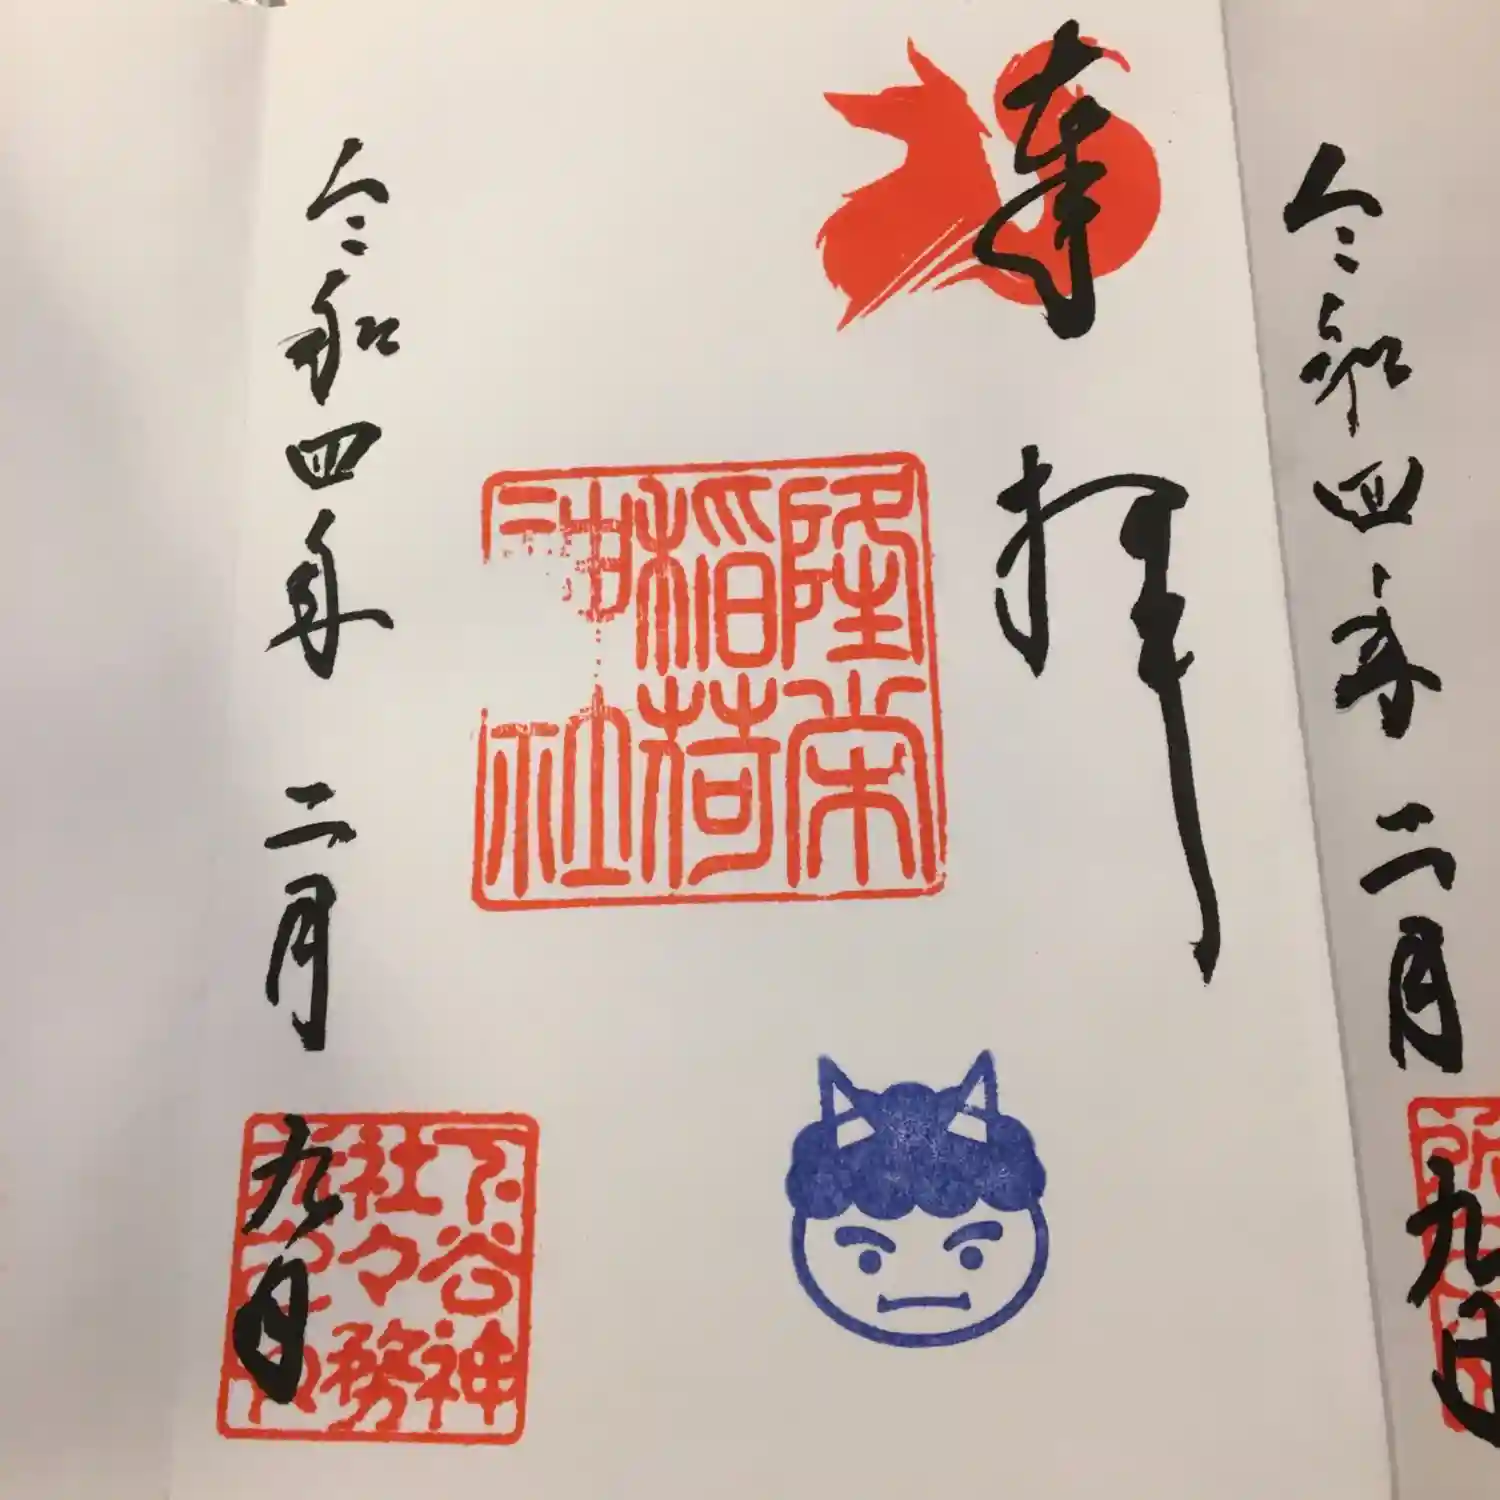 奉拝
隆栄
稲荷
神社
令和四年二月九日
下谷神
社々務
所之印
令和四年二月九日